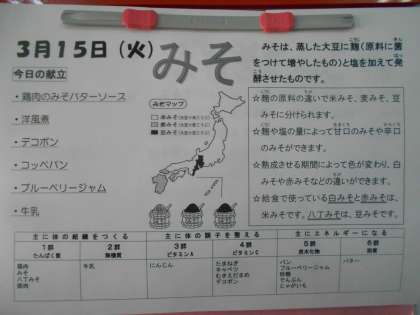 3月15日（火）みそ
今日の献立
・鶏肉のみそバターソース
・洋風煮
・デコポン
・コッペパン
・ブルーベリージャム
・牛乳
みそマップ
みそは、蒸した大豆に麹（原料に菌
をつけて増やしたもの）と塩を加えて発
酵させたものです。
☆麹の原料の違いで米みそ、麦みそ、豆み
そに分けられます。
☆麹や塩の量によって甘口のみそや辛口
のみそができます。
☆熟成させる期間によって色が変わり、白
みそや赤みそなどの違いができます。
☆給食で使っている白みそと赤みそは、
米みそです。八丁みそは、豆みそです。
主に体の組織をつくる 主に体の調子を整える 主にエネルギーになる
1群 2群 3群 4群 5群 6群
たんぱく質 無機質 ビタミンA ビタミンC 炭水化物 脂質
鶏肉 牛乳 にんじん たまねぎ パン バター
みそ キャベツ ブルーベリージャム
八丁みそ むきえだまめ 砂糖
豚肉 デコポン でんぷん
じゃがいも